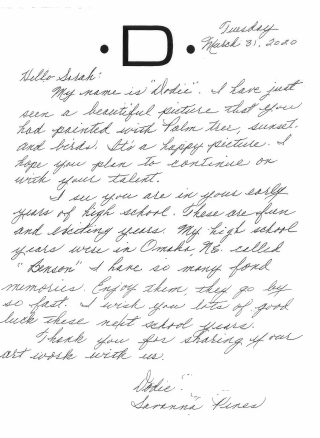 Tuesday
·D·
March 31, 2020
Hello Sarah:
My name is "Dodie". I have just
seen a beautiful picture that you
had painted with Palm tree, sunset.
and birds. It's a happy picture. I
hope you plan to continue on
with your talent.
I see you are in your early
years of high school. These are fun
and exciting years. My high school
years were in Omaha, NE. called
"Benson" I have so many fond
memories. Enjoy them, they go by
so fast. I wish you lots of good
luck these next school years.
Thank you for sharing your
art work with us.
Dodie".
Savanna Pines